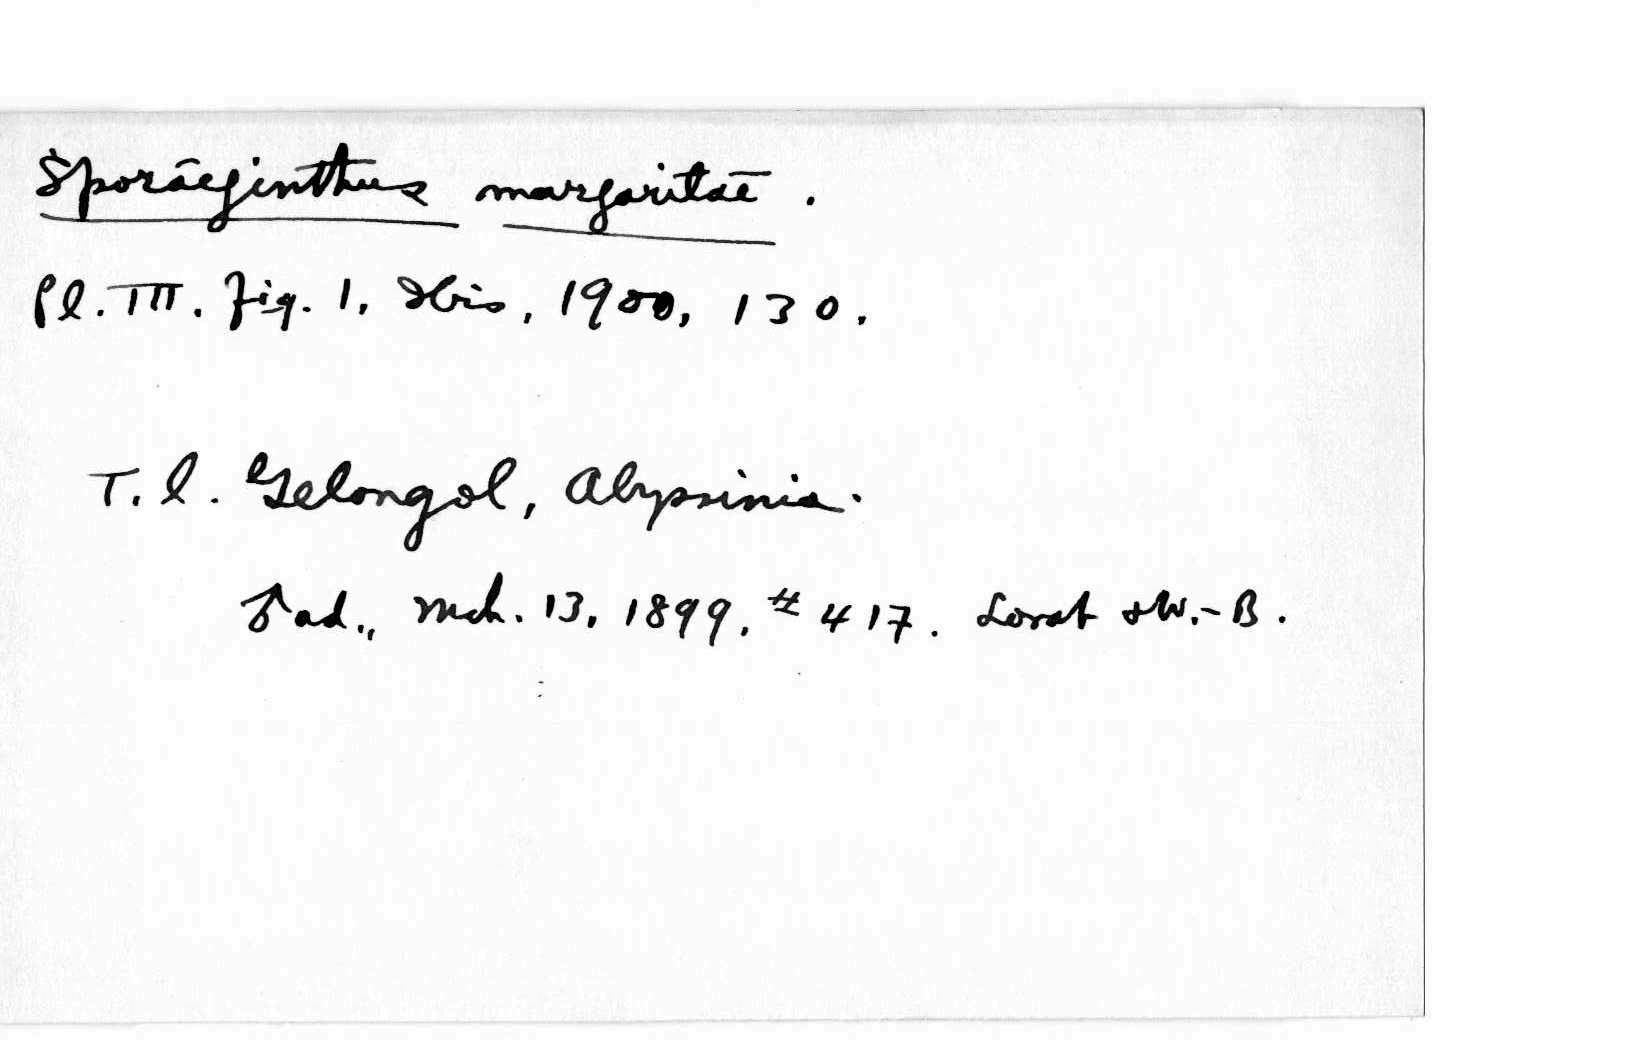 Sporaeginthus margaritae.
Pl. III. Fig. 1, Ibis, 1900, 130.
T. l. Gelongol, Abyssinia.
♂ ad., Mch. 13, 1899. # 417. Lovat & W.-B.